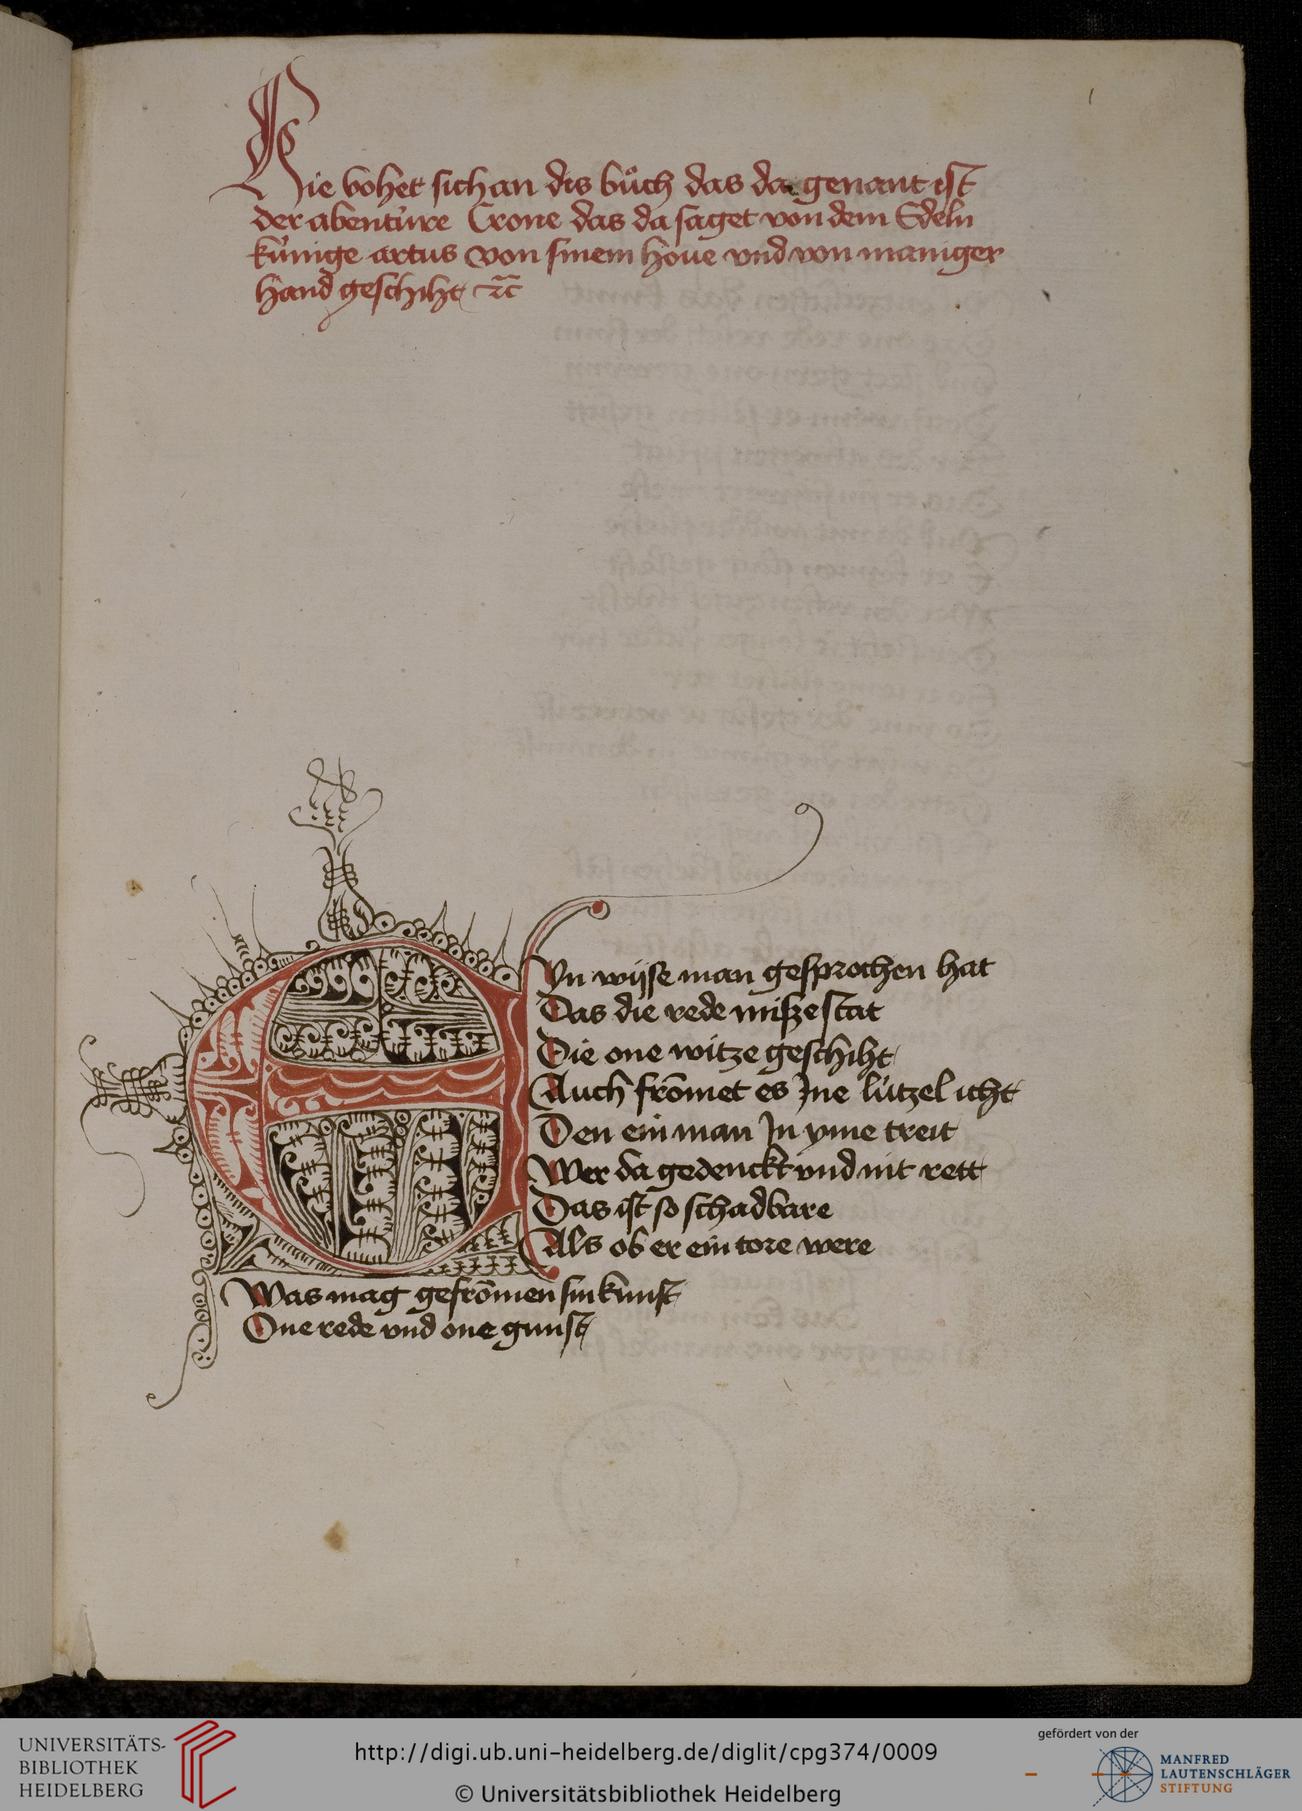 Hie vohet sich an dis bůch das da genant ist
der abentúre Crone das da saget von dem Edeln
kúnige artus von sinem houe vnd von maniger
hand geschiht ⁊c̃
EYn wijse man gesprochen hat
Das die rede miszestat
Die one witze geschiht
Auch frõmet es Jne lútzel icht
Den ein man Jn yme treit
Wer da gedenckt vnd nit rett
Das ist so schadbare
Als ob er ein tore were
Was mag gefrõmen sin kunst
One rede vnd one gunst
UNIVERSITÄTS-
BIBLIOTHEK
HEIDELBERG
http://digi.ub.uni-heidelberg.de/diglit/cpg374/0009
© Universitätsbibliothek Heidelberg
gefördert von der
MANFRED
LAUTENSCHLÄGER
STIFTUNG